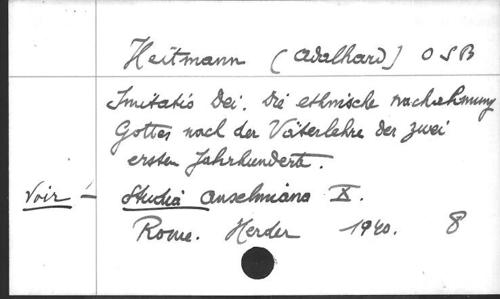 Heitmann (Adalhard) OSB
Imitatio Dei. Die ethnische nachahmung
Gottes nach der Väterlehre der zwei
ersten Jahrhunderte.
Voir - Studia anselmiana X.
Rome. Herder 1940. 8